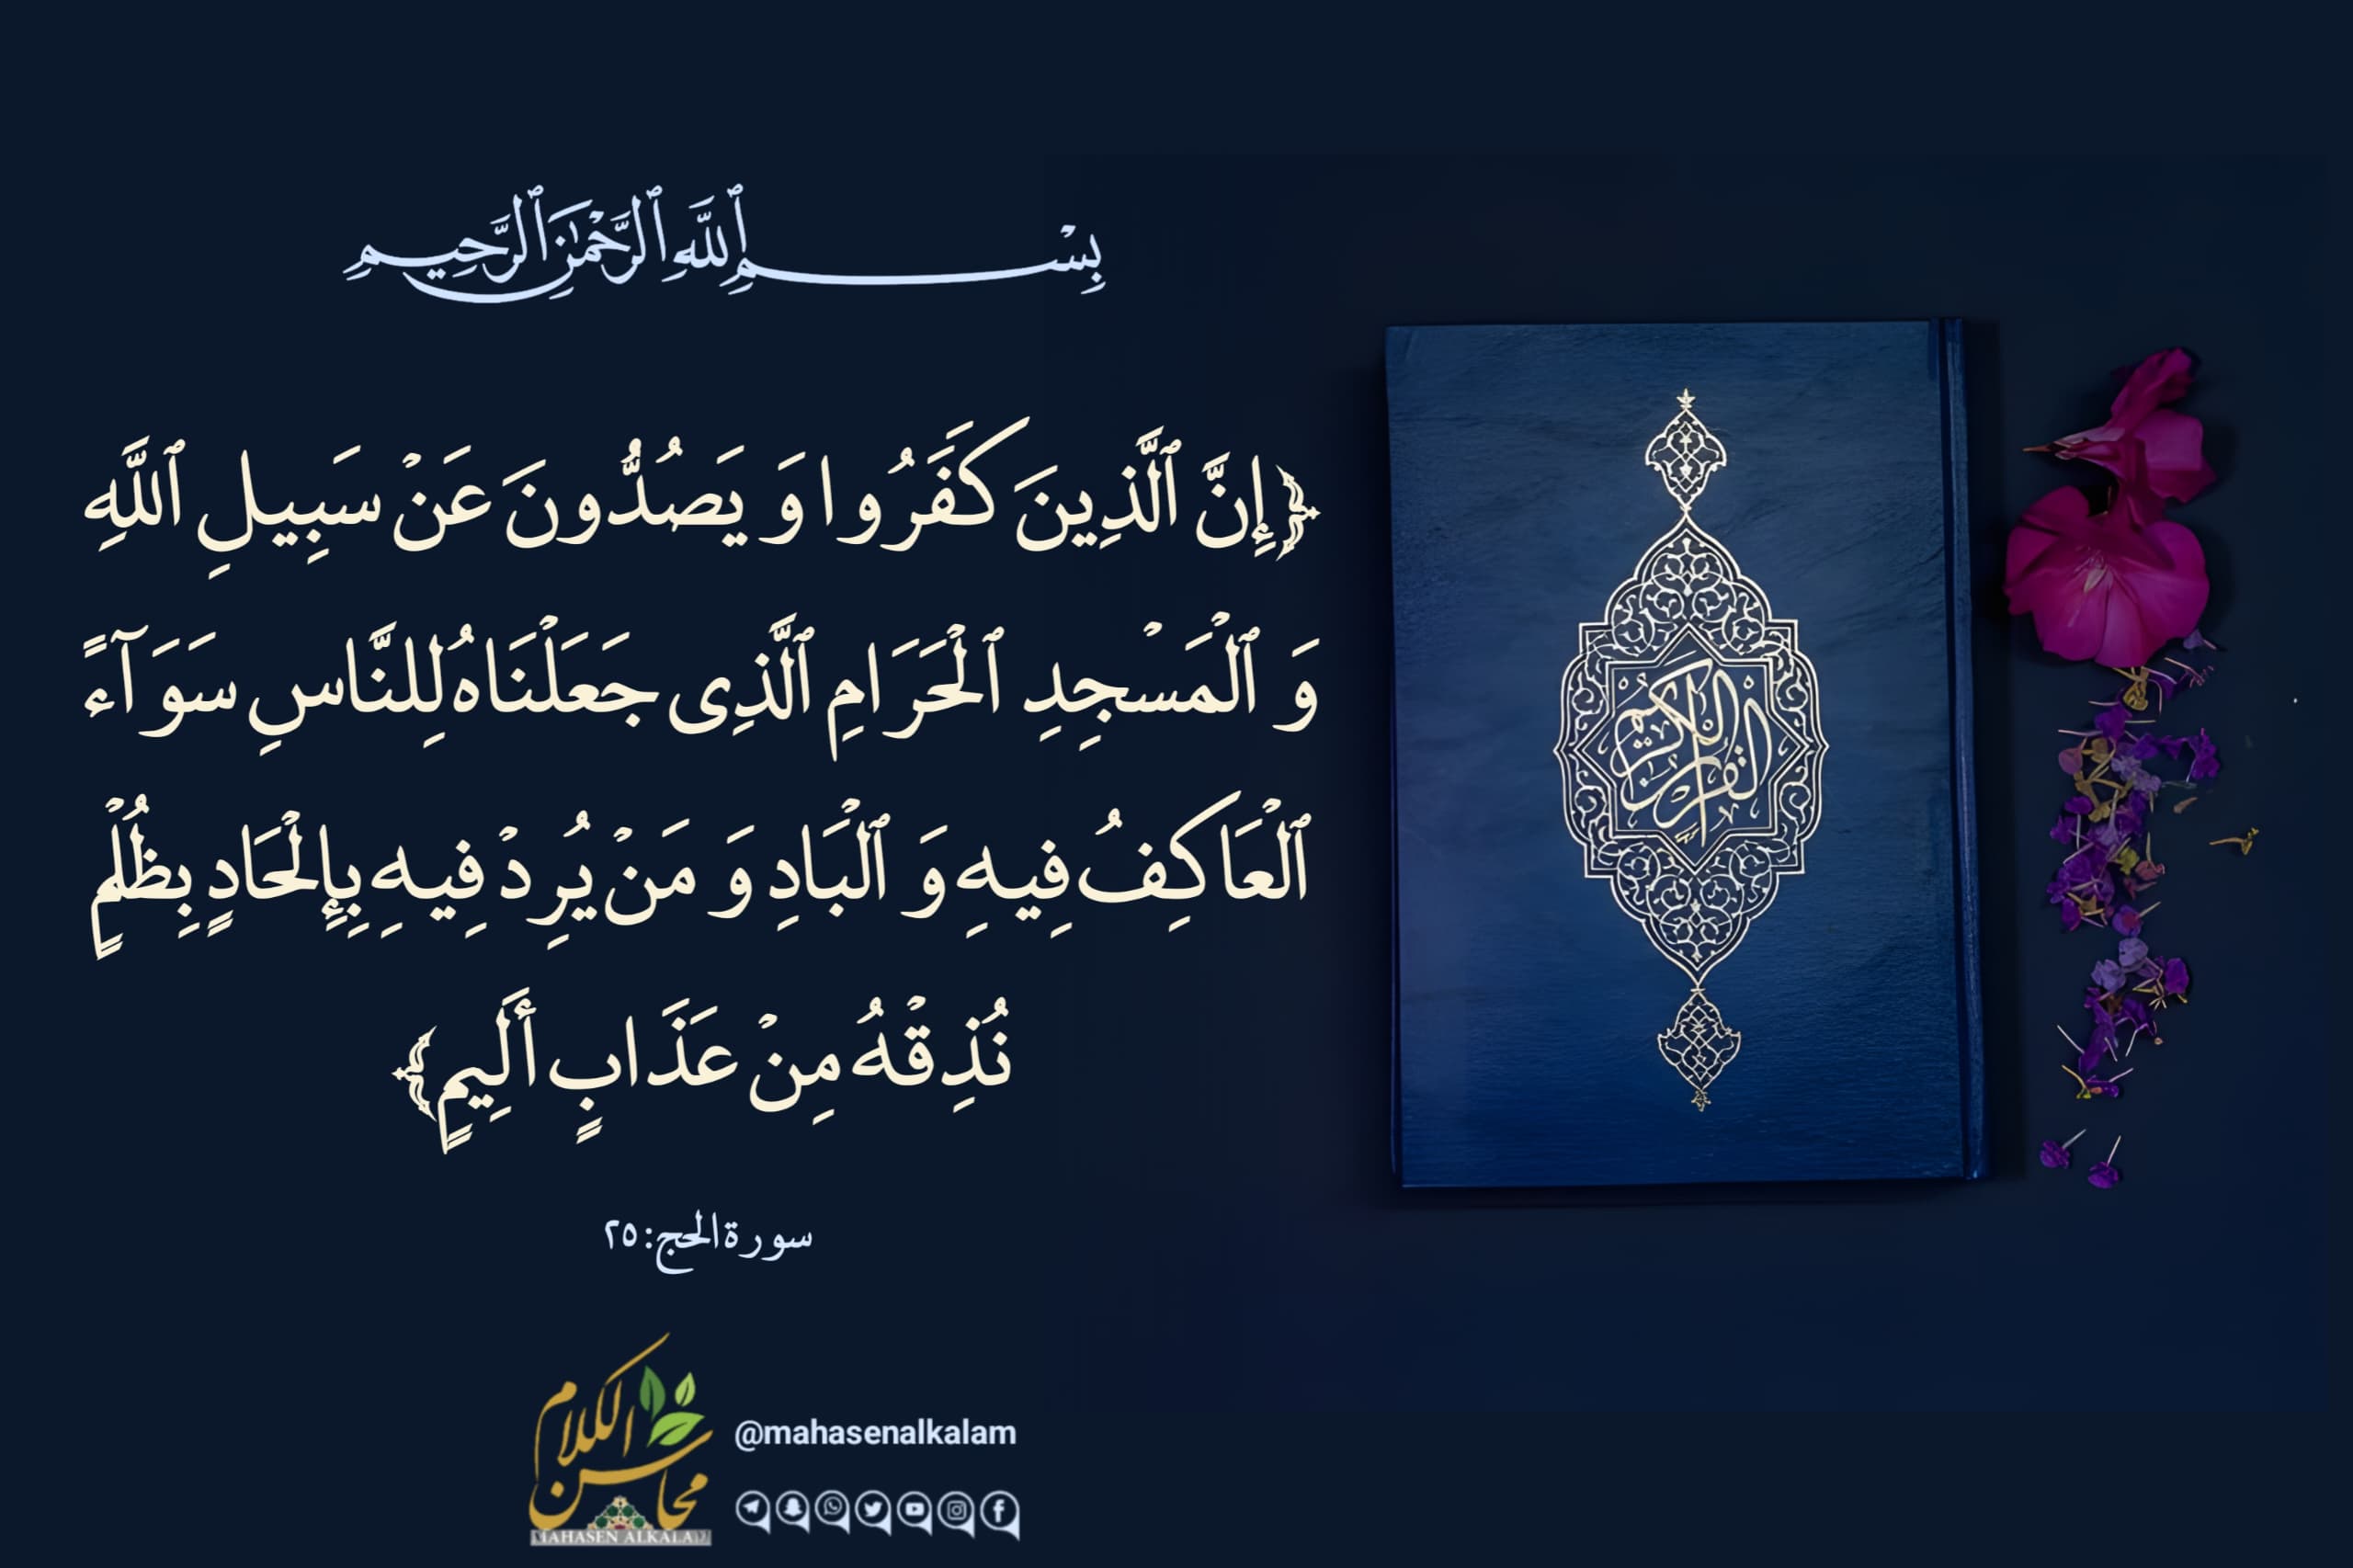 بِسْمِ ٱللَّهِ ٱلرَّحْمَٰنِ ٱلرَّحِيمِ
﴿إِنَّ ٱلَّذِينَ كَفَرُوا وَ يَصُدُّونَ عَنْ سَبِيلِ ٱللَّهِ
وَ ٱلْمَسْجِدِ ٱلْحَرَامِ ٱلَّذِى جَعَلْنَاهُ لِلنَّاسِ سَوَآءً
ٱلْعَاكِفُ فِيهِ وَ ٱلْبَادِ وَ مَنْ يُرِدْ فِيهِ بِإِلْحَادٍ بِظُلْمٍ
نُذِقْهُ مِنْ عَذَابٍ أَلِيمٍ﴾
سورة الحج: ٢٥
القرآن الكريم
محاسن الكلام
MAHASEN ALKALAM
@mahasenalkalam